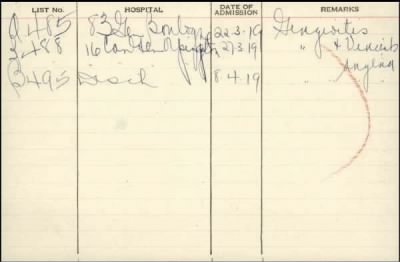 LIST No. HOSPITAL DATE OF ADMISSION REMARKS
A485 83 Gen Boulogne 22-3-19 Gingivitis
B488 116 27.3.19 " & Vincents
Angina
B495 Disch 8.4.19 "